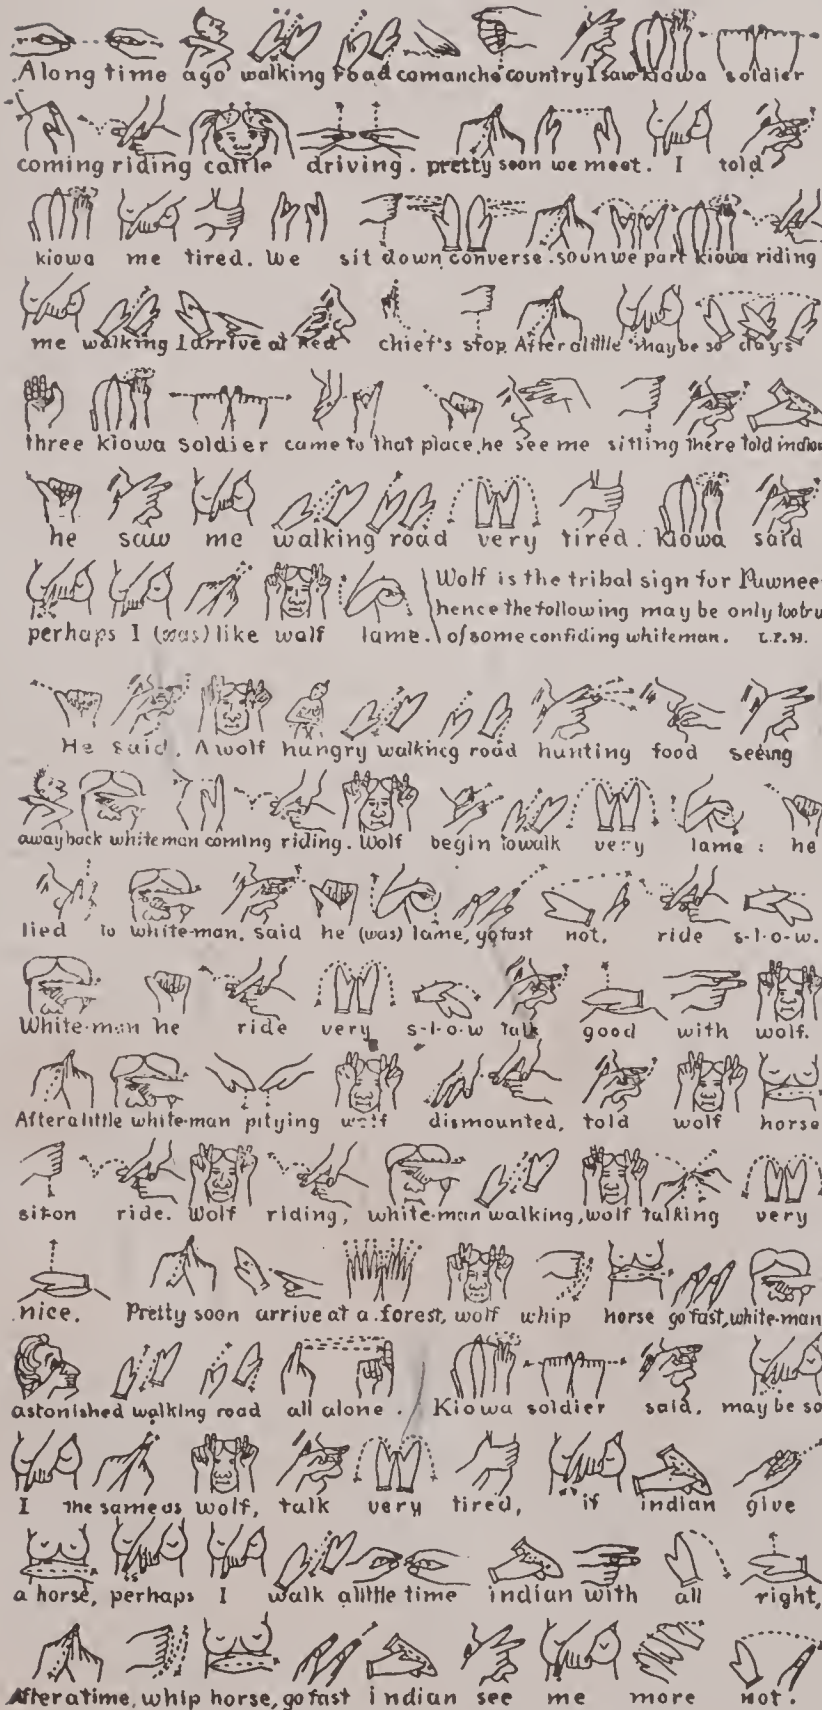 A long time ago walking road comanche country I saw kiowa soldier
coming riding cattle driving. pretty soon we meet. I told
kiowa me tired. We sit down, converse. soon we part kiowa riding
me walking I arrive at Red chief's stop After a little maybe so days
three kiowa soldier came to that place, he see me sitting there told indian
he saw me walking road very tired. Kiowa said
perhaps I (was) like walf lame.
Wolf is the tribal sign for Pawnee
hence the following may be only too tru
of some confiding whiteman. L.F.H.
He said. A wolf hungry walking road hunting food seeing
away back white man coming riding. Wolf begin to walk very lame: he
lied to white-man. said he (was) lame, go fast not, ride s-l-o-w.
White-man he ride very s-l-o-w talk good with wolf.
After a little white-man pitying wolf dismounted, told wolf horse
sit-on ride. Wolf riding, white-man walking, wolf talking very
nice. Pretty soon arrive at a forest, wolf whip horse go fast, white-man
astonished walking road all alone. Kiowa soldier said. may be so
I the same as wolf, talk very tired, if indian give
a horse, perhaps I walk a little time indian with all right,
After a time, whip horse, go fast indian see me more not.